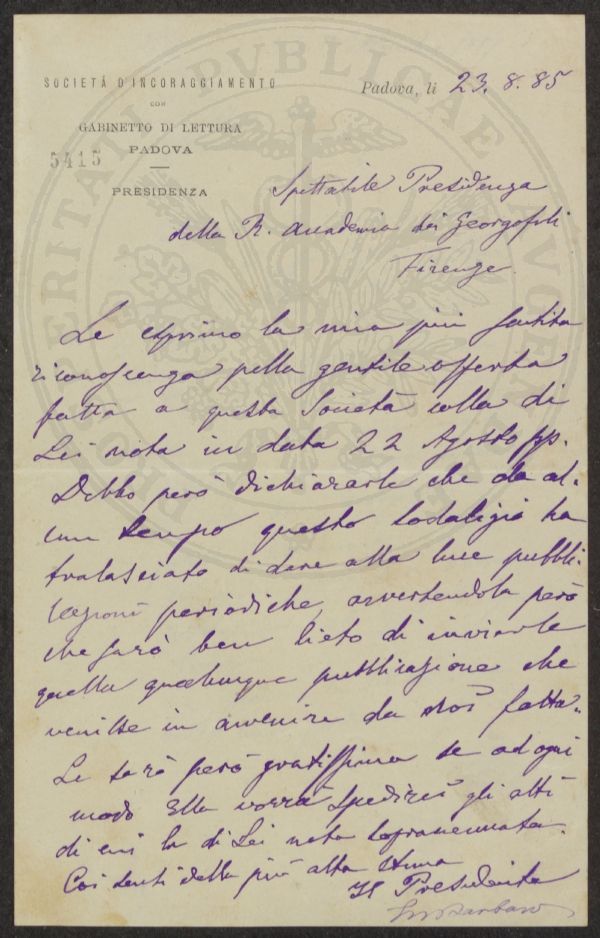 SOCIETÀ D'INCORAGGIAMENTO
CON
GABINETTO DI LETTURA
PADOVA
5415
PRESIDENZA
Padova, li 23. 8. 85
Spettabile Presidenza
della R. Accademia dei Georgofili
Firenze
Le esprimo la mia più sentita
riconoscenza pella gentile offerta
fatta a questa Società colla di
Lei nota in data 22 Agosto pp.
Debbo però dichiararle che da al-
cun tempo questo sodalizio ha
tralasciato di dare alla luce pubbli-
cazioni periodiche, avvertendola però
che sarò ben lieto di inviarle
quella qualunque pubblicazione che
venisse in avvenire da noi fatta.
Le sarò però gratissimo se ad ogni
modo Ella vorrà spedirci gli atti
di cui la di Lei nota sopraccennata.
Coi sensi della più alta stima
Il Presidente